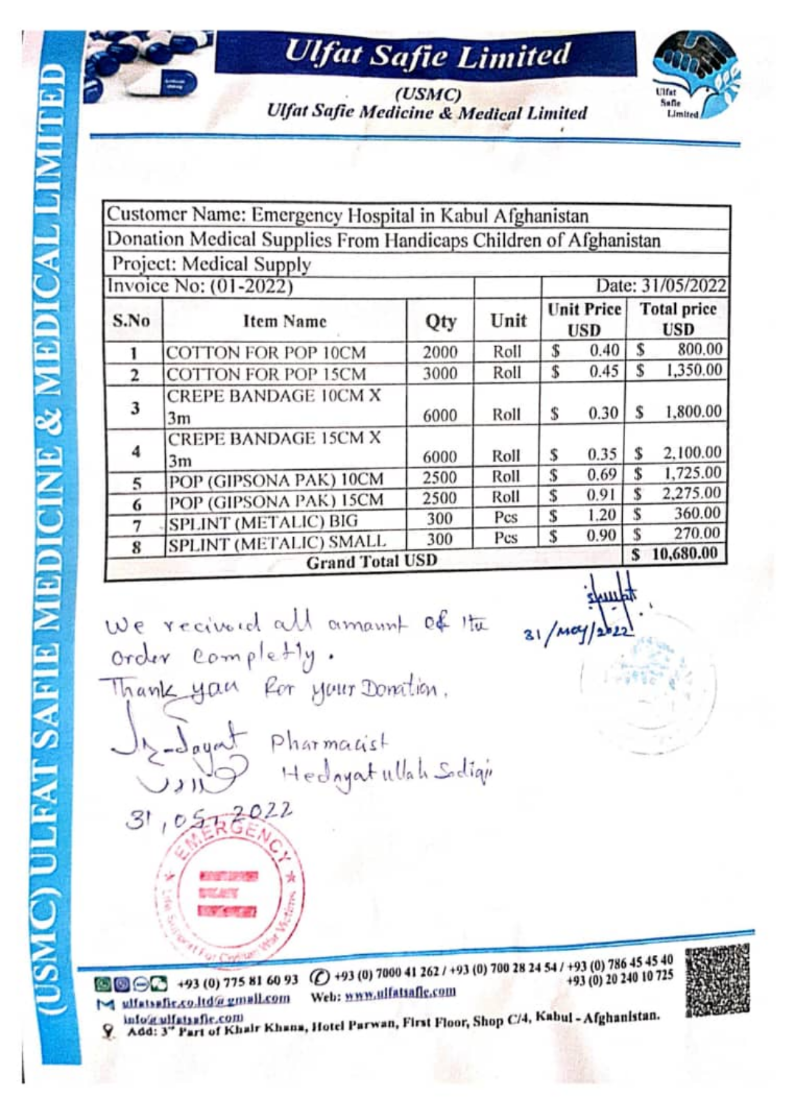 (USMC) ULFAT SAFIE MEDICINE & MEDICAL LIMITED
Ulfat Safie Limited
(USMC)
Ulfat Safie Medicine & Medical Limited
Ulfat
Safie
Limited
Customer Name: Emergency Hospital in Kabul Afghanistan
Donation Medical Supplies From Handicaps Children of Afghanistan
Project: Medical Supply
Invoice No: (01-2022) Date: 31/05/2022
S.No Item Name Qty Unit Unit Price USD Total price USD
1 COTTON FOR POP 10CM 2000 Roll $ 0.40 $ 800.00
2 COTTON FOR POP 15CM 3000 Roll $ 0.45 $ 1,350.00
3 CREPE BANDAGE 10CM X 3m 6000 Roll $ 0.30 $ 1,800.00
4 CREPE BANDAGE 15CM X 3m 6000 Roll $ 0.35 $ 2,100.00
5 POP (GIPSONA PAK) 10CM 2500 Roll $ 0.69 $ 1,725.00
6 POP (GIPSONA PAK) 15CM 2500 Roll $ 0.91 $ 2,275.00
7 SPLINT (METALIC) BIG 300 Pcs $ 1.20 $ 360.00
8 SPLINT (METALIC) SMALL 300 Pcs $ 0.90 $ 270.00
Grand Total USD $ 10,680.00
31/May/2022
We recivoid all amount of the
order completly.
Thank you for your Donation.
Pharmacist
Hedayatullah Sadiqi
31,05,2022
EMERGENCY
Life Support For Civilian War Victims
+93 (0) 775 81 60 93 +93 (0) 7000 41 262 / +93 (0) 700 28 24 54 / +93 (0) 786 45 45 40
+93 (0) 20 240 10 725
ulfatsafie.co.ltd@gmail.com Web: www.ulfatsafie.com
info@ulfatsafie.com
Add: 3rd Part of Khair Khana, Hotel Parwan, First Floor, Shop C/4, Kabul - Afghanistan.